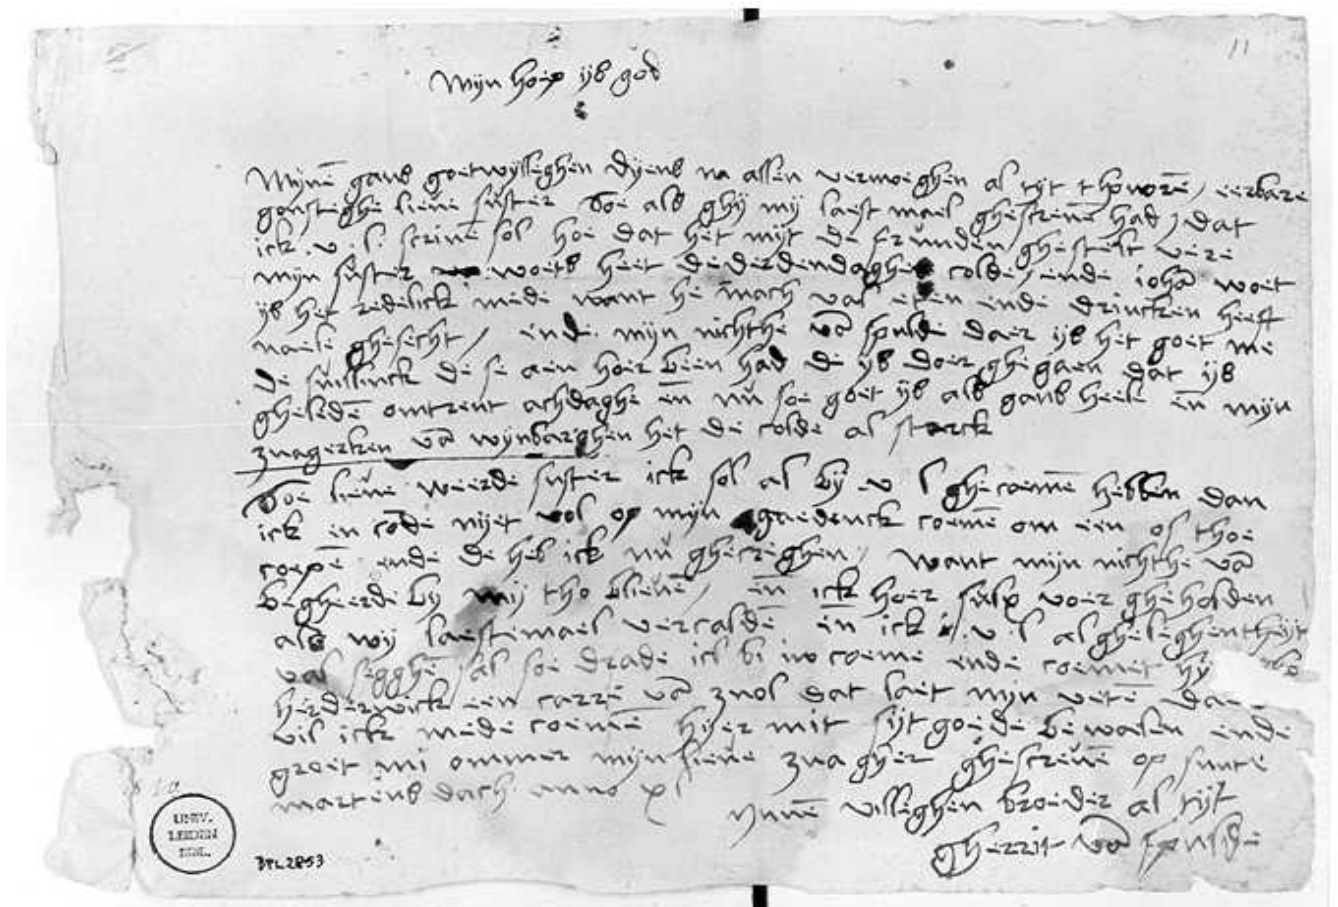 11
Mijn hoep ijs god
Mijnē gans goetwijllighen dijens na allen vermoeghen al tijt thovorē / eerbare
gonstighe lieve suster Soe als ghij mij laest mael ghescrevē had / dat
ick u. l. scrivē sol hoe dat het mijt de frunden ghestelt were
mijn suster woets heet de derdendaghes colde / ende johā woet
ijs het redelick mede want he mach val eten ende drincken heeft
naele ghesecht / ende mijn nichthe vā spulde daer ijs het goet me
de sullinck de se aen hoer been had de ijs doer ghegaen dat ijs
gheledē omtrent achdaghe eñ nu soe goet ijs als gans heele eñ mijn
zwagerken vā wijnbarghen het de colde al starck
Soe lieve weerde suster ick sol al bij u l ghecoemē hebben dan
ick en cōde nijet wol op mijn gaedenck coemē om een os thoe
coepē ende de heb ick nu ghecreghen / want mijn nichthe vā
begheerde bij mij tho blievē / eñ ick hoer sulx voer gheholden
als wij laestemael vercaldē eñ ick u l al gheleghentheijt
val segghē sal soe drade ick bi uw coeme ende coemet hij
herderwick een carre vā zwol dat laet mijn wetē dae
vil ick mede coemē hijer mit sijt goede bewalen ende
groet mi ommer mijn lieve zwagher ghescrevē op sunte
martens dach anno xl
uwē villighen broeder al tijt
gherrit vā spulde
UNIV.
LEIDEN
BIBL.
BPL 2853